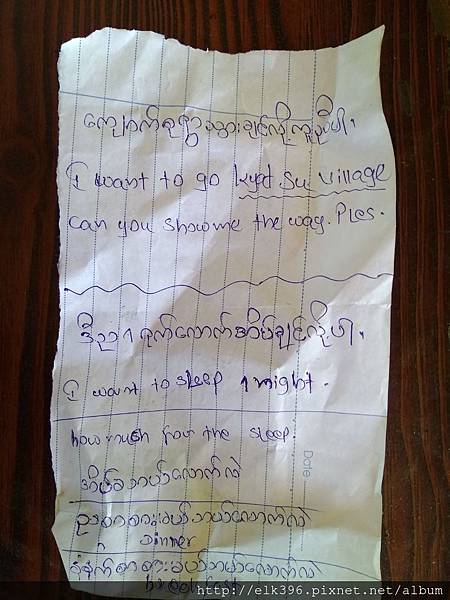 ကျောက်စုရွာသွားချင်လို့ကူညီပါ။
I want to go kyat su village
can you show me the way. Ples.
ဒီည ၁ ရက်လောက်အိပ်ချင်လို့ပါ။
I want to sleep 1 night.
how much for the sleep.
အိပ်ခဘယ်လောက်လဲ
ညစာစားမယ်ဘယ်လောက်လဲ
Dinner
မနက်စာစားမယ်ဘယ်လောက်လဲ
Date
http://elk396.pixnet.net/album